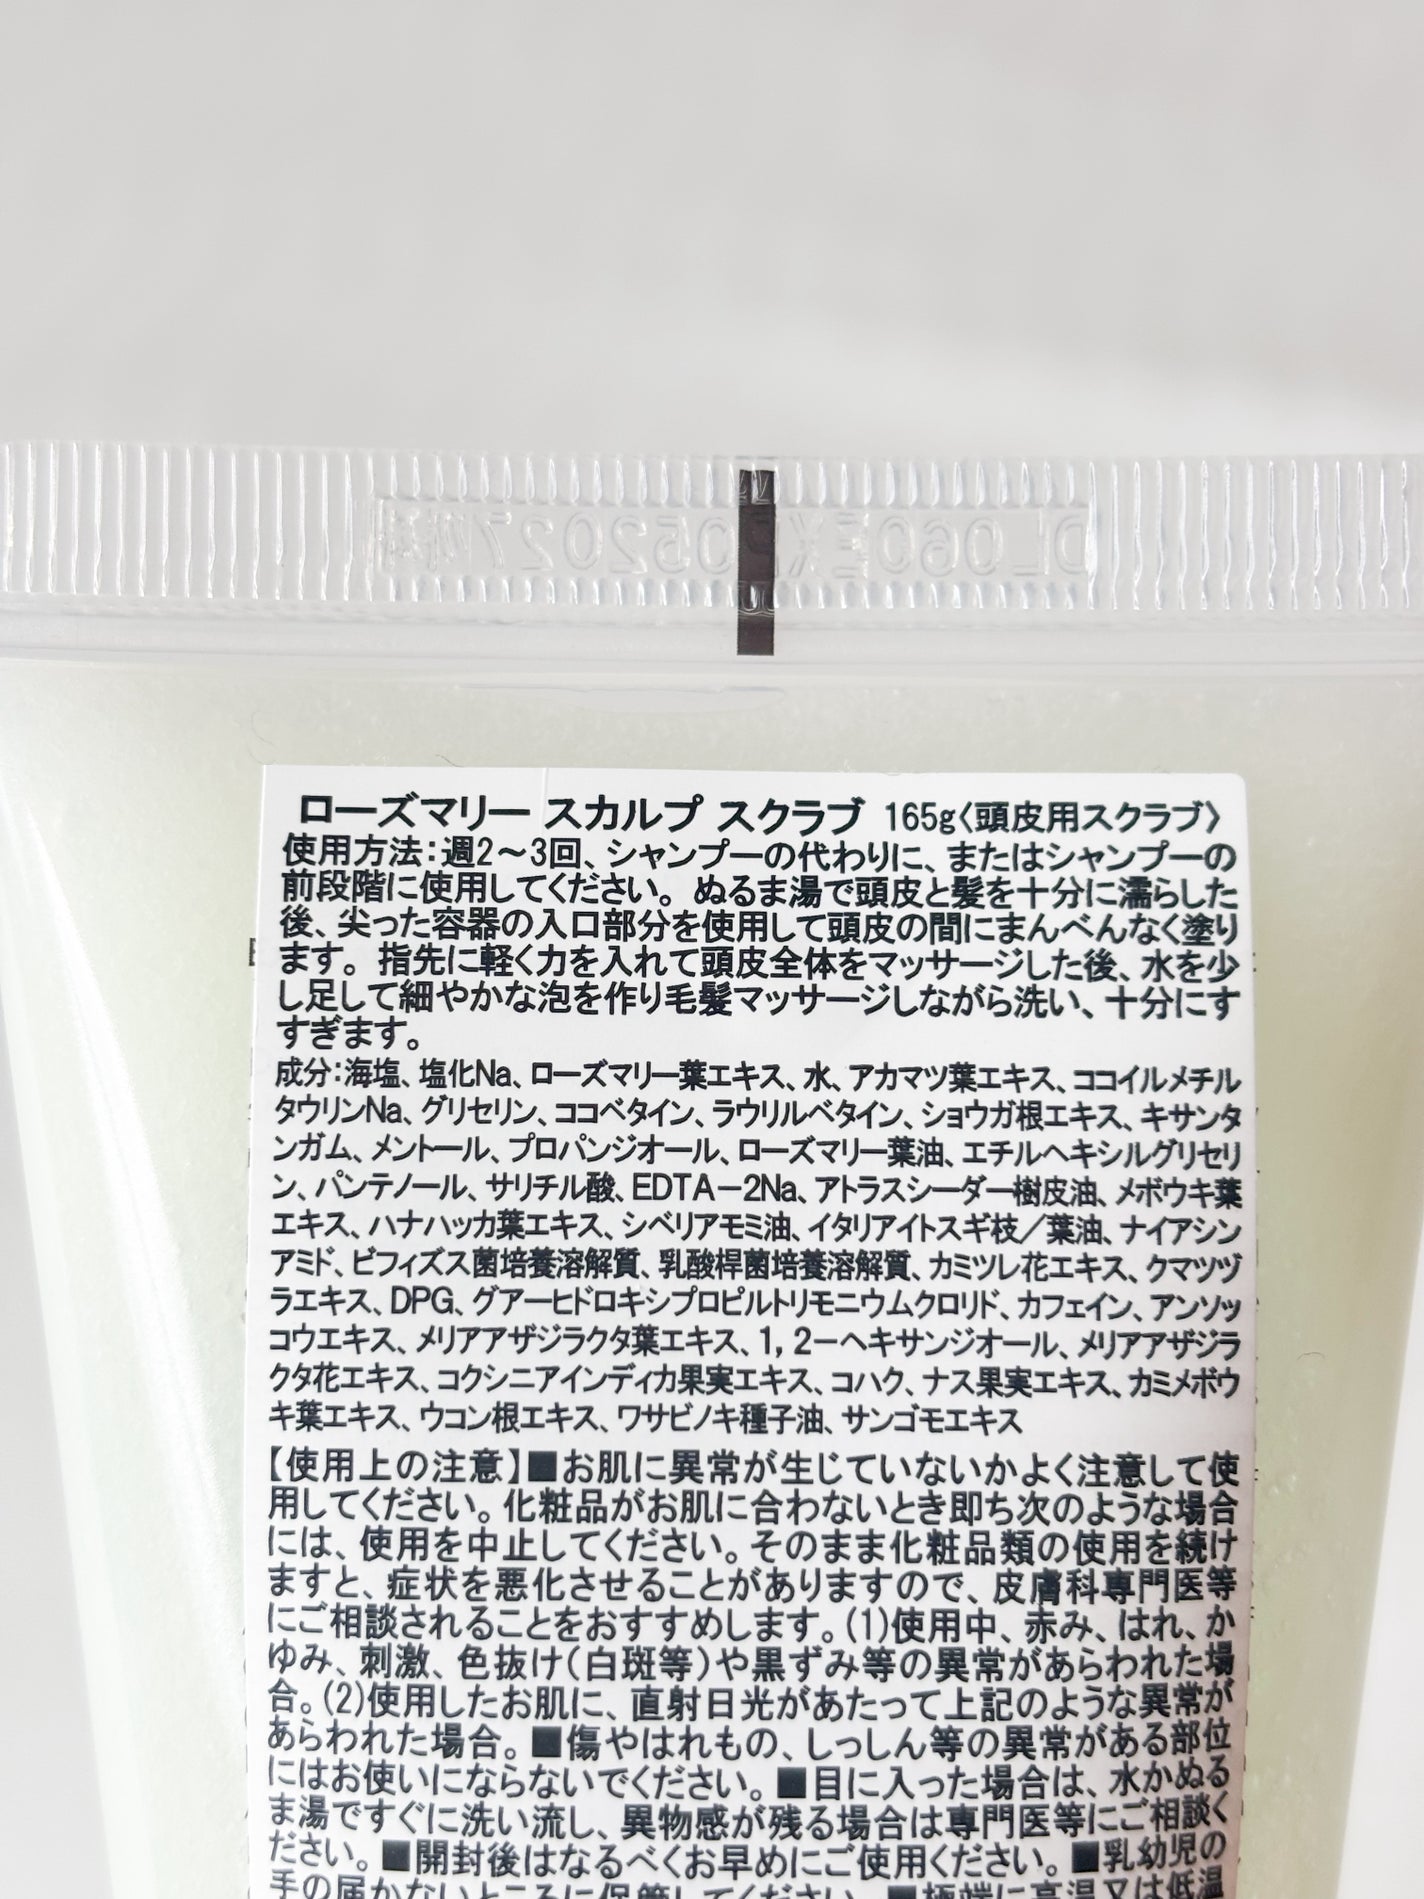 DL060EXP052027
ローズマリー スカルプ スクラブ 165g〈頭皮用スクラブ〉
使用方法：週2～3回、シャンプーの代わりに、またはシャンプーの
前段階に使用してください。ぬるま湯で頭皮と髪を十分に濡らした
後、尖った容器の入口部分を使用して頭皮の間にまんべんなく塗り
ます。指先に軽く力を入れて頭皮全体をマッサージした後、水を少
し足して細やかな泡を作り毛髪マッサージしながら洗い、十分にす
すぎます。
成分：海塩、塩化Na、ローズマリー葉エキス、水、アカマツ葉エキス、ココイルメチル
タウリンNa、グリセリン、ココベタイン、ラウリルベタイン、ショウガ根エキス、キサンタ
ンガム、メントール、プロパンジオール、ローズマリー葉油、エチルヘキシルグリセリ
ン、パンテノール、サリチル酸、EDTA－2Na、アトラスシーダー樹皮油、メボウキ葉
エキス、ハナハッカ葉エキス、シベリアモミ油、イタリアイトスギ枝／葉油、ナイアシン
アミド、ビフィズス菌培養溶解質、乳酸桿菌培養溶解質、カミツレ花エキス、クマツヅ
ラエキス、DPG、グアーヒドロキシプロピルトリモニウムクロリド、カフェイン、アンソッ
コウエキス、メリアアザジラクタ葉エキス、1，2－ヘキサンジオール、メリアアザジラ
クタ花エキス、コクシニアインディカ果実エキス、コハク、ナス果実エキス、カミメボウ
キ葉エキス、ウコン根エキス、ワサビノキ種子油、サンゴモエキス
【使用上の注意】■お肌に異常が生じていないかよく注意して使
用してください。化粧品がお肌に合わないとき即ち次のような場合
には、使用を中止してください。そのまま化粧品類の使用を続け
ますと、症状を悪化させることがありますので、皮膚科専門医等
にご相談されることをおすすめします。(1)使用中、赤み、はれ、か
ゆみ、刺激、色抜け（白斑等）や黒ずみ等の異常があらわれた場
合。(2)使用したお肌に、直射日光があたって上記のような異常が
あらわれた場合。■傷やはれもの、しっしん等の異常がある部位
にはお使いにならないでください。■目に入った場合は、水かぬる
ま湯ですぐに洗い流し、異物感が残る場合は専門医等にご相談く
ださい。■開封後はなるべくお早めにご使用ください。■乳幼児の
手の届かないところに保管してください。■極端に高温又は低温